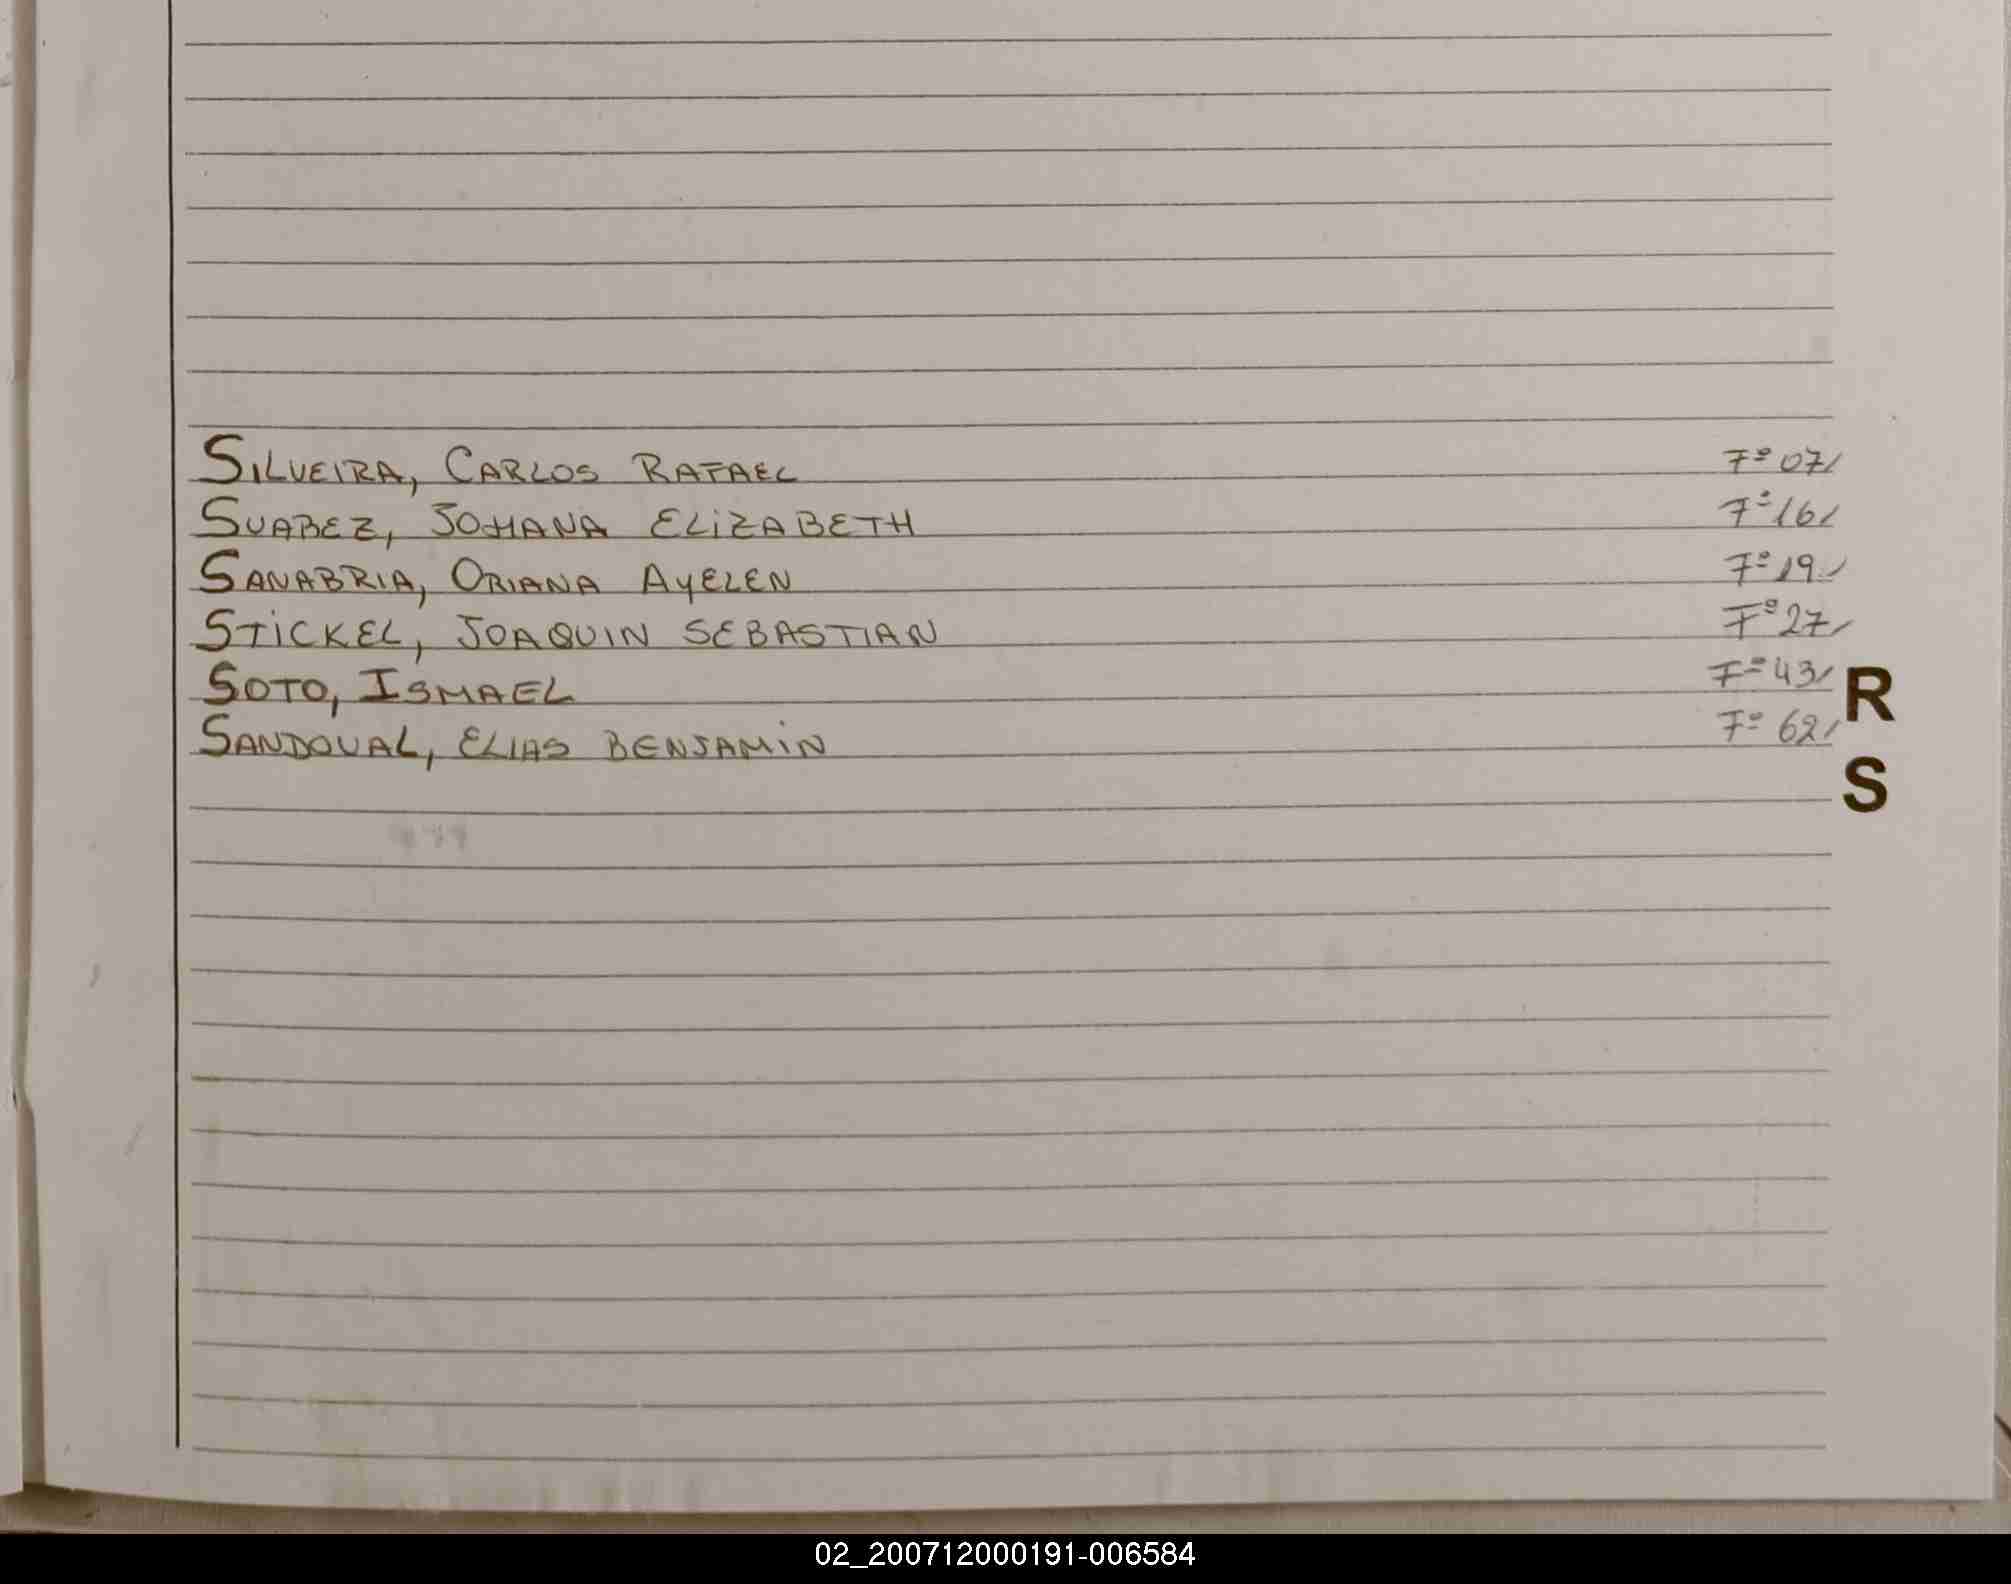 SILVEIRA, CARLOS RAFAEL Fº 07/
SUAREZ, JOHANA ELIZABETH Fº 16/
SANABRIA, ORIANA AYELEN Fº 19/
STICKEL, JOAQUIN SEBASTIAN Fº 27/
SOTO, ISMAEL Fº 43/
R
SANDOVAL, ELIAS BENJAMIN Fº 62/
S
02_200712000191-006584